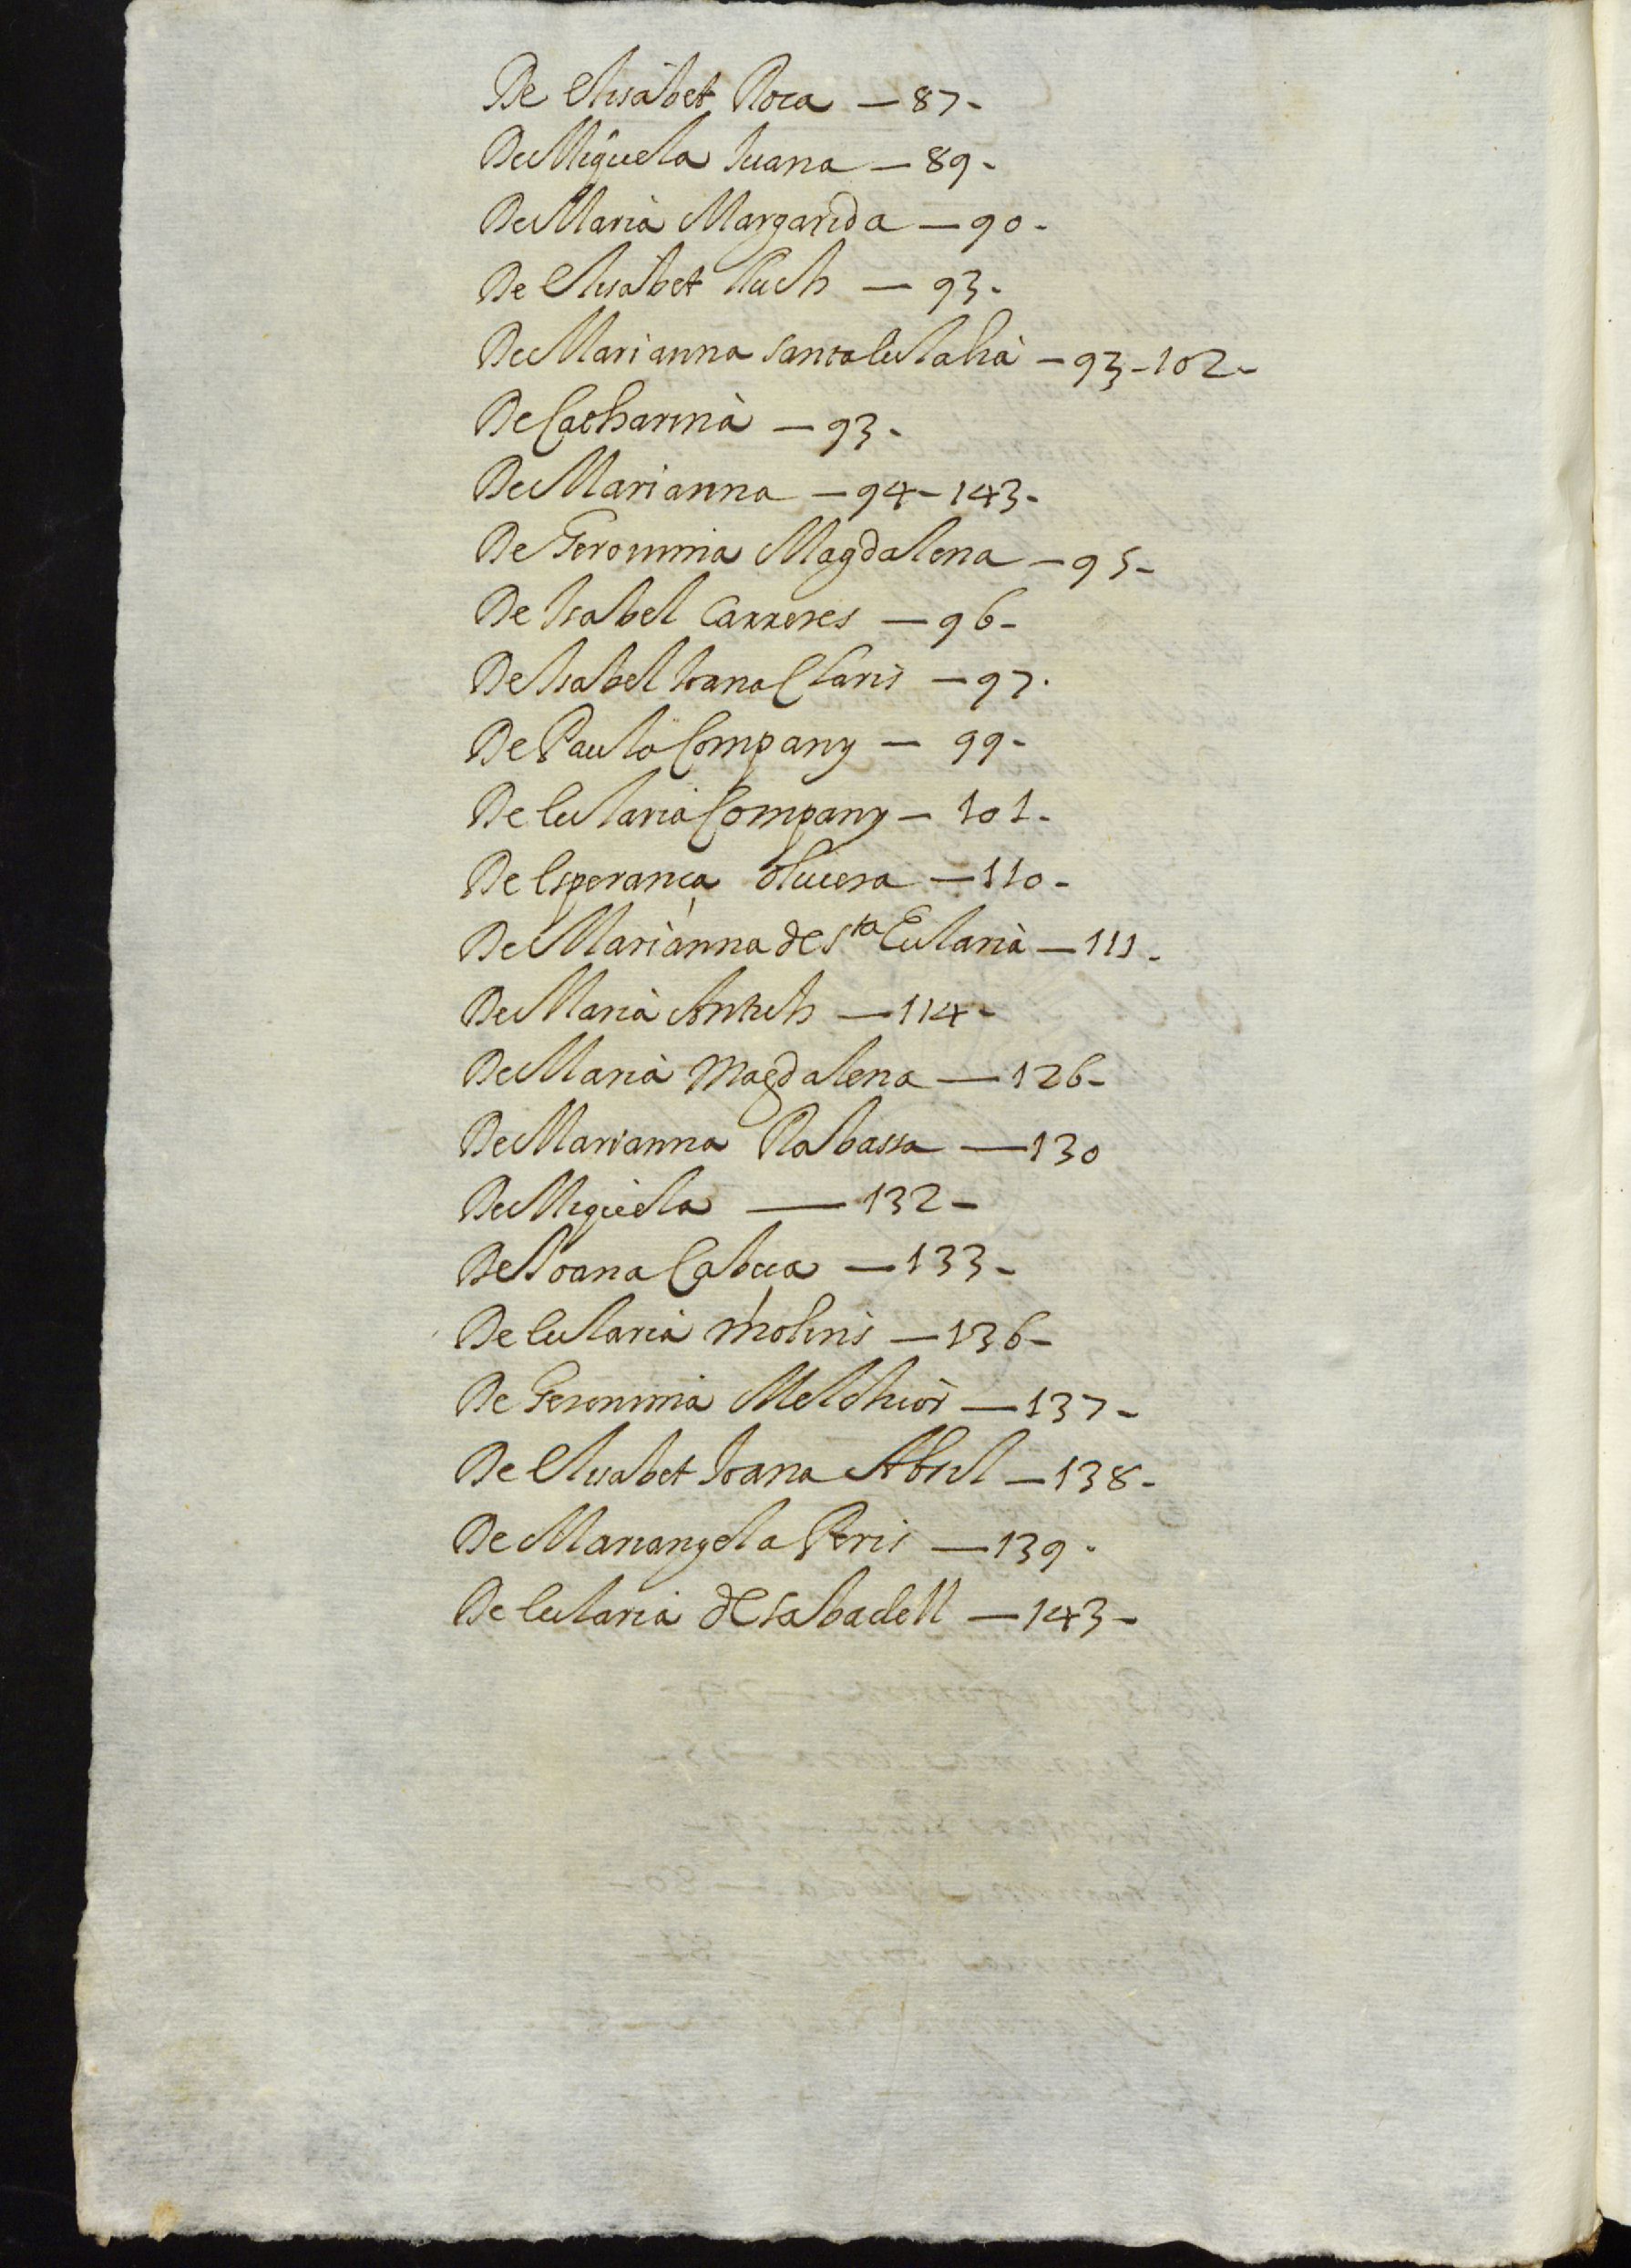 De Elisabet Roca — 87-
De Miquela Iuana — 89-
De Maria Margarida — 90-
De Elisabet lluch — 93-
De Marianna santa Eulalia — 93-102-
De Catharina — 93-
De Marianna — 94-143-
De Geronima Magdalena — 95-
De Isabel Carreres — 96-
De Isabel Ioana Claris — 97.
De Paula Company — 99-
De Eularia Company — 101-
De Esperança olivera — 110-
De Marianna de Sta Eularia — 111-
De Maria Antich — 114-
De Maria Magdalena — 126-
De Marianna Rabassa — 130
De Miquela — 132-
De Ioana Cabeça — 133-
De Eularia molins — 136-
De Geronima Melchior — 137-
De Elisabet Ioana Abril — 138-
De Mariangela Peris — 139-
De Eularia de sabadell — 143-